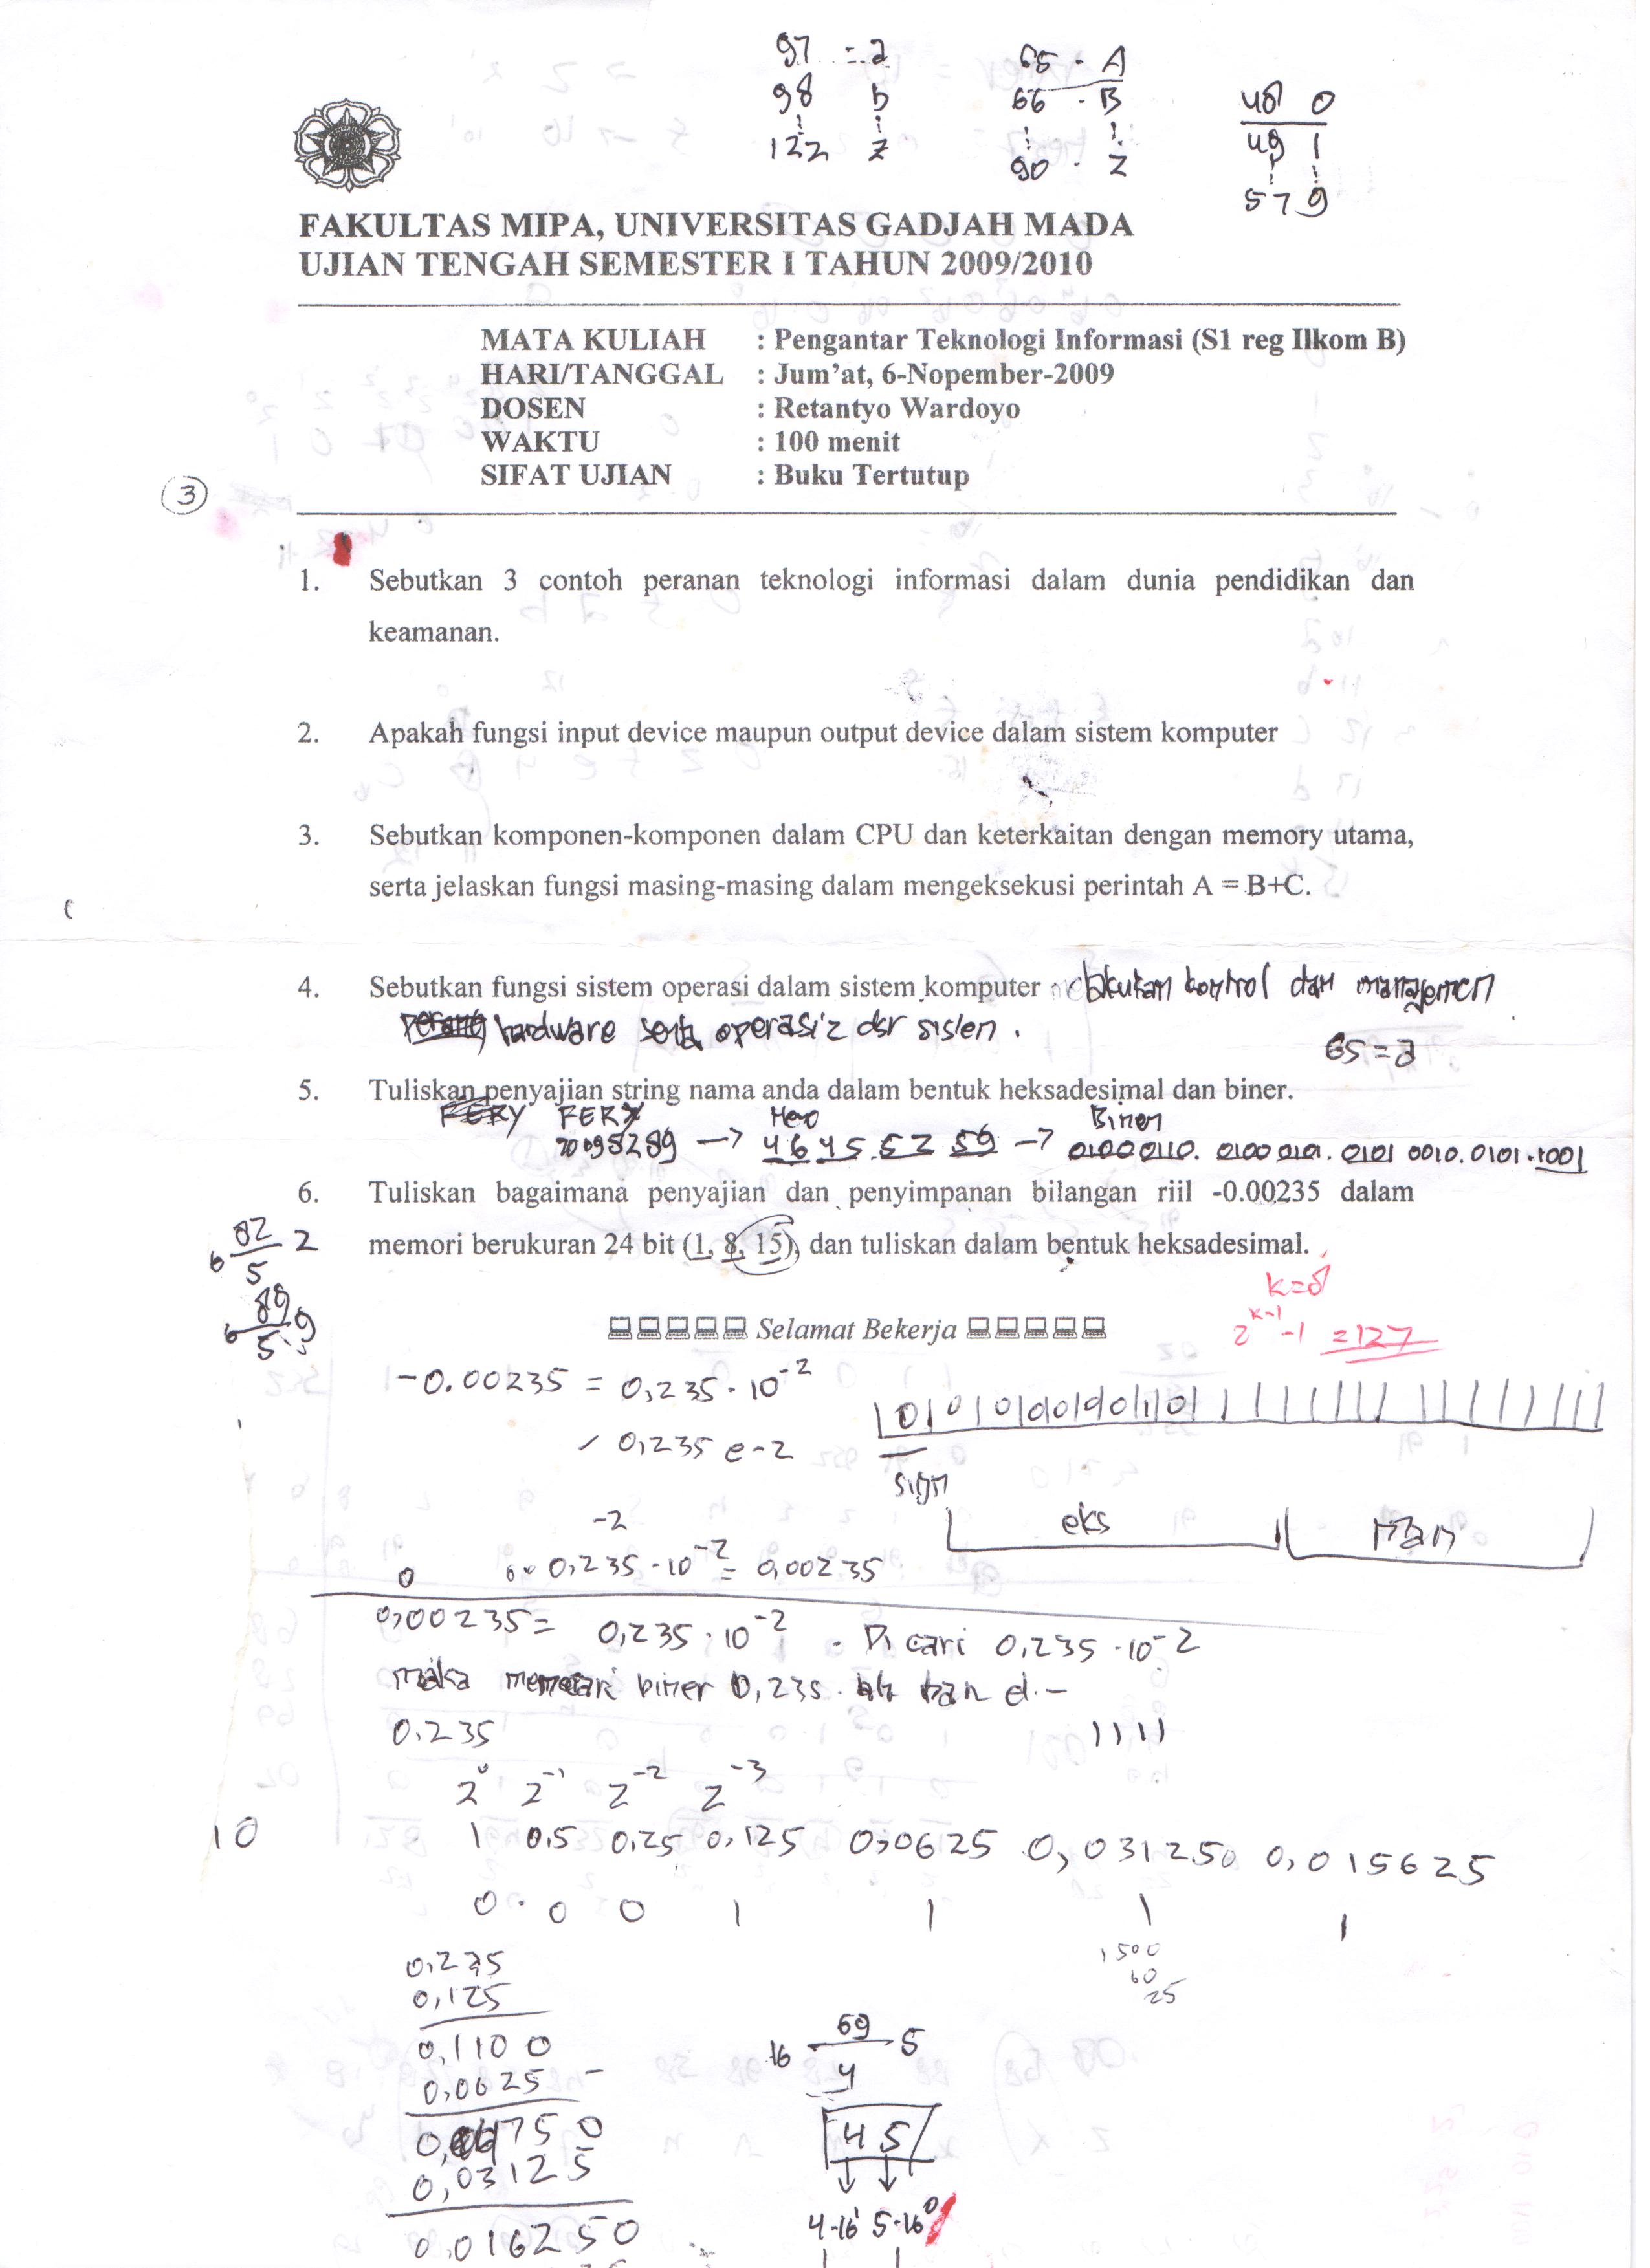 97 = a
98 b
122 z
65 - A
66 - B
90 - Z
48 0
49 1
57 9
FAKULTAS MIPA, UNIVERSITAS GADJAH MADA
UJIAN TENGAH SEMESTER I TAHUN 2009/2010
MATA KULIAH : Pengantar Teknologi Informasi (S1 reg Ilkom B)
HARI/TANGGAL : Jum'at, 6-Nopember-2009
DOSEN : Retantyo Wardoyo
WAKTU : 100 menit
SIFAT UJIAN : Buku Tertutup
3
1. Sebutkan 3 contoh peranan teknologi informasi dalam dunia pendidikan dan
keamanan.
2. Apakah fungsi input device maupun output device dalam sistem komputer
3. Sebutkan komponen-komponen dalam CPU dan keterkaitan dengan memory utama,
serta jelaskan fungsi masing-masing dalam mengeksekusi perintah A = B+C.
4. Sebutkan fungsi sistem operasi dalam sistem komputer kontrol dan managemen
hardware serta operasi2 dsr sistem.
65 = a
5. Tuliskan penyajian string nama anda dalam bentuk heksadesimal dan biner.
FERY FERY Hexa Binen
→ 46 45 52 59 → 0100 0110. 0100 0101. 0101 0010. 0101.1001
6. Tuliskan bagaimana penyajian dan penyimpanan bilangan riil -0.00235 dalam
memori berukuran 24 bit (1, 8, 15), dan tuliskan dalam bentuk heksadesimal.
82 2
6
5
89 9
6
5
k=8
2^k-1 -1 = 127
Selamat Bekerja
-0.00235 = 0,235 · 10^-2
0,235 e-2
sign
eks
man
-2
0 0,235 · 10^-2 = 0,00235
0,00235 = 0,235 · 10^-2 - Di cari 0,235 · 10^-2
maka mencari biner 0,235
0.235 1111
2^0 2^-1 2^-2 2^-3
10 1 0.5 0,25 0,125 0,0625 0,031250 0,015625
0 . 0 0 1 1 1 1
1500
60
25
0,235
0,125
0,1100
0,0625 -
0,04750
0,03125
0,016250
69
16 5
4
4 5
4·16^1 5·16^0